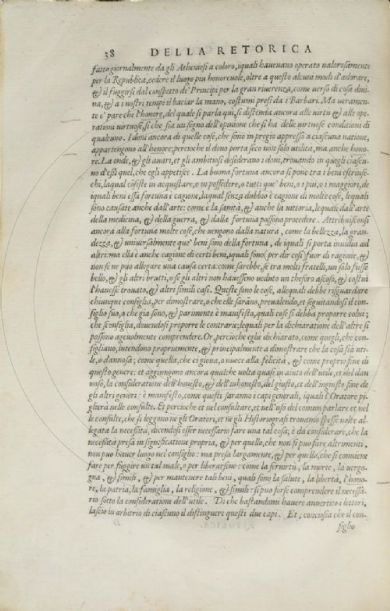 38 DELLA RETORICA
fatto giornalmente da gli Atheniesi a coloro, iquali haueuano operato ualorosamente
per la Republica, cedere il luogo piu honoreuole, oltre a questo alcuni modi d'adorare,
& il fuggirsi dal conspetto de' Principi per la gran riuerenza, come uerso di cosa diui-
na, & a i nostri tempi il baciar la mano, costumi presi da i Barbari. Ma ueramen-
te e' pare che l'honore, del quale si parla qui, si distenda ancora alle uirtù & alle ope-
rationi uirtuose, si che sia un segno dell'openione che si ha delle uirtuose conditioni di
qualcuno. I doni ancora di quelle cose, che sono in pregio appresso a ciascuna natione,
appartengono all'honore, percioche il dono porta seco non solo utilità, ma anche hono-
re. La onde, & gli auari, et gli ambitiosi desiderano i doni, trouando in quegli ciascu-
no d'essi quel, che egli appetisce. La buona fortuna ancora si pone tra i beni esteriori:
la qual consiste in acquistare, o in possedere, o tutti que' beni, o i piu, o i maggiori, de
quali beni essa fortuna è cagione, laqual senza dubbio è cagione di molte cose, lequali
sono causate anche dall'arte: come è la sanità, & anche la uittoria, lequali dall'arte
della medicina, & della guerra, & dalla fortuna possono procedere. Attribuisconsi
ancora alla fortuna molte cose, che uengono dalla natura, come la bellezza, la gran-
dezza, & uniuersalmente que' beni sono della fortuna, de iquali si porta inuidia ad
altri: ma ella è anche cagione di certi beni, iquali sono per dir cosi fuor di ragione, &
donde non si puo allegare una causa certa: come sarebbe, se tra molti fratelli, un solo fusse
bello, & gli altri brutti, o se gli altri non hauessino ueduto un thesoro ascoso, & costui
l'hauesse trouato, & altri simili casi. Queste sono le cose, alle quali debbe risguardare
chiunque consiglia, per dimostrare, o che elle saranno, preualendo, et seguitandosi il con-
siglio suo, o che gia sono, & parimente è manifesto, quali cose si debba proporre colui,
che sconsiglia, douendosi proporre le contrarie: lequali per la dichiaratione dell'altre si
possono ageuolmente comprendere. Or, percioche egli è dichiarato, come quegli, che con-
sigliano, intendono propriamente, & principalmente a dimostrare che la cosa sia uti-
le, o dannosa: come quella, che ci gioua, o nuoce alla felicità, & come proprio fine di
questo genere: et aggiungono ancora qualche uolta quasi in aiuto dell'utile, et del dan-
noso, la consideratione dell'honesto, & dell'inhonesto, del giusto, et dell'ingiusto fine de
gli altri generi: è manifesto, come questi saranno i capi generali, iquali l'Oratore pi-
glierà nelle consulte. Et percioche et nel consultare, et nell'uso del comun parlare et nel-
le consulte, che si leggono ne gli Oratori, et ne gli Historiografi trouiamo spesse uolte al-
legata la necessità, dicendosi esser necessario fare una tal cosa; è da considerare, che la
necessità presa in significatione propria, & per quello, che non si puo fare altrimenti,
non puo hauer luogo nel consiglio: ma presa largamente, & per quello, che si conuiene
fare per fuggire un tal male, o per liberarsene: come la seruitù, la morte, la uergo-
gna, & simili, & per mantenere tali beni, quali sono la salute, la libertà, l'hono-
re, la patria, la famiglia, la religione, & simili: si puo forse comprendere il necessa-
rio sotto la consideratione dell'utile. Di che bastandomi hauere auuertito i lettori,
lascio in arbitrio di ciascuno il distinguere questi due capi. Et, conciosia che il con-
siglio